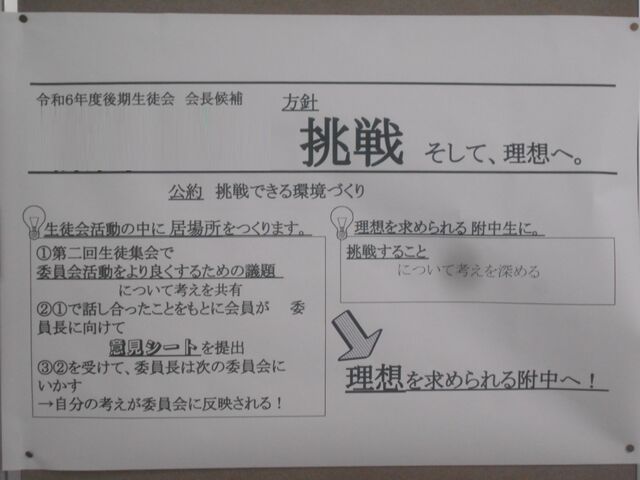 令和6年度後期生徒会 会長候補
方針
挑戦 そして、理想へ。
公約 挑戦できる環境づくり
生徒会活動の中に居場所をつくります。
①第二回生徒集会で
委員会活動をより良くするための議題
について考えを共有
②①で話し合ったことをもとに会員が 委
員長に向けて
意見シートを提出
③②を受けて、委員長は次の委員会に
いかす
→自分の考えが委員会に反映される！
理想を求められる附中生に。
挑戦すること
について考えを深める
理想を求められる附中へ！